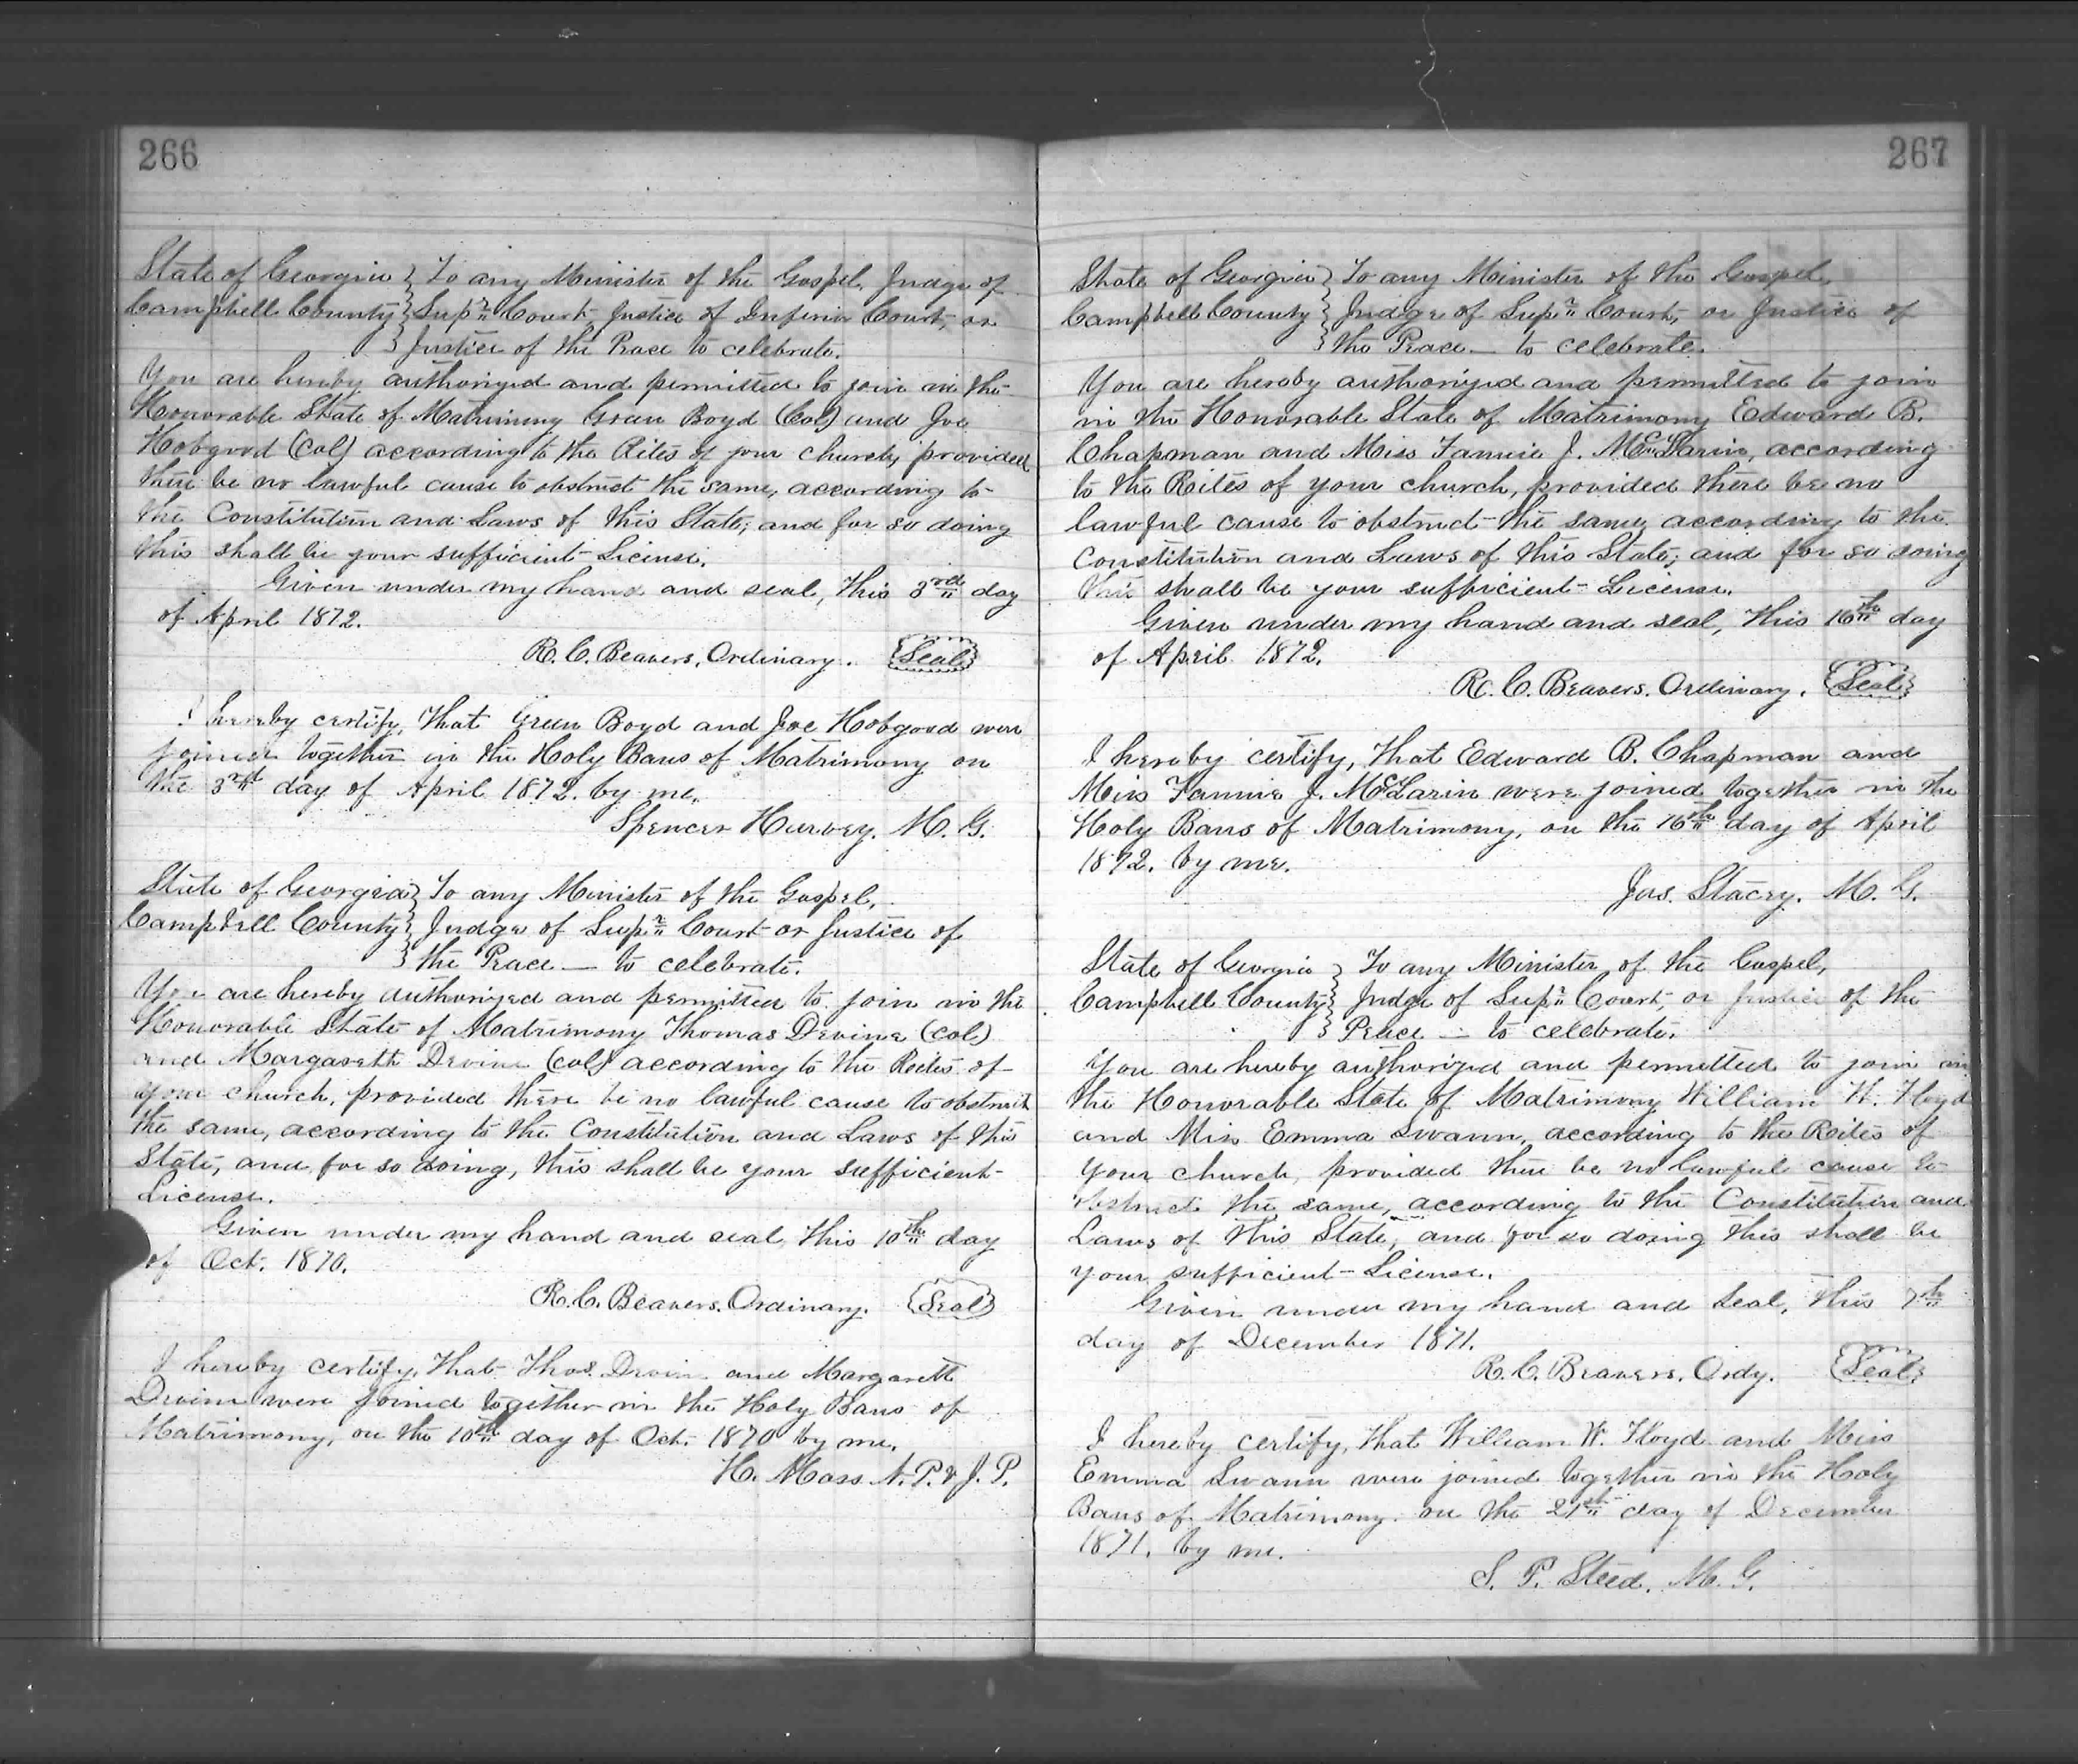 266
State of Georgia } To any Minister of the Gospel, Judge of
Campbell County } Sup.r Court, Justice of Inferior Court, or
} Justice of the Peace to celebrate.
You are hereby authorized and permitted to join in the
Honorable State of Matrimony Green Boyd (Col) and Joe
Hobgood (Col) according to the Rites of your church, provided
there be no lawful cause to obstruct the same, according to
the Constitution and Laws of this State; and for so doing
this shall be your sufficient License.
Given under my hand and seal, this 3rd day
of April 1872.
R. C. Beavers, Ordinary. Seal
I hereby certify, that Green Boyd and Joe Hobgood were
joined together in the Holy Bans of Matrimony on
the 3rd day of April 1872. by me.
Spencer Harvey. M. G.
State of Georgia } To any Minister of the Gospel,
Campbell County } Judge of Sup.r Court or Justice of
} the Peace — to celebrate.
You are hereby authorized and permitted to join in the
Honorable State of Matrimony Thomas Devine (Col)
and Margarett Devine (Col) according to the Rites of
your church, provided there be no lawful cause to obstruct
the same, according to the Constitution and Laws of this
State, and for so doing, this shall be your sufficient
License.
Given under my hand and seal, this 10th day
of Oct. 1870.
R. C. Beavers. Ordinary. Seal
I hereby certify, that Thos. Devin and Margarett
Devine were joined together in the Holy Bans of
Matrimony, on the 10th day of Oct. 1870 by me.
H. Moss N. P. & J. P.
267
State of Georgia } To any Minister of the Gospel,
Campbell County } Judge of Sup.r Court, or Justice of
} the Peace — to celebrate.
You are hereby authorized and permitted to join
in the Honorable State of Matrimony Edward B.
Chapman and Miss Fannie J. McLarin, according
to the Rites of your church, provided there be no
lawful cause to obstruct the same, according to the
Constitution and Laws of this State; and for so doing
this shall be your sufficient License.
Given under my hand and seal, this 16th day
of April 1872.
R. C. Beavers. Ordinary. Seal
I hereby certify, that Edward B. Chapman and
Miss Fannie J. McLarin were joined together in the
Holy Bans of Matrimony, on the 16th day of April
1872. by me.
Jas. Stacey. M. G.
State of Georgia } To any Minister of the Gospel,
Campbell County } Judge of Sup.r Court, or Justice of the
} Peace — to celebrate.
You are hereby authorized and permitted to join in
the Honorable State of Matrimony William W. Floyd
and Miss Emma Swann, according to the Rites of
your church, provided there be no lawful cause to
obstruct the same, according to the Constitution and
Laws of this State, and for so doing this shall be
your sufficient License.
Given under my hand and seal, this 7th
day of December 1871.
R. C. Beavers. Ordy. Seal
I hereby certify, that William W. Floyd and Miss
Emma Swann were joined together in the Holy
Bans of Matrimony on the 21st day of December
1871. by me.
S. P. Steed. M. G.